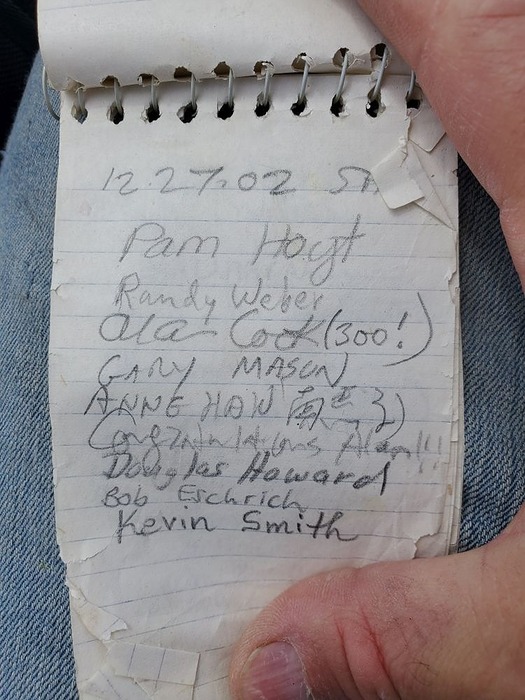 12.27.02
Pam Hoyt
Randy Weber
Alan Cook (300!)
GARY MASON
ANNE HAW
Congratulations Alan!!!
Douglas Howard
Bob Eschrich
Kevin Smith